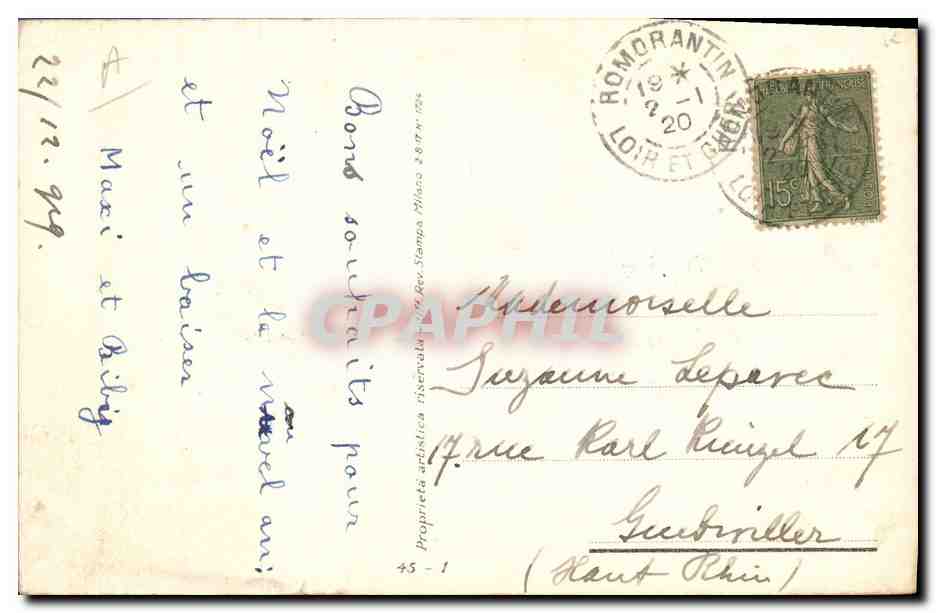 22/12.919.
A
Bons souhaits pour
Noël et le nouvel an
et un baiser
Maxi et Biby
Proprietà artistica riservata - Rev. Stampa Milano 2-8-17 N° 1726
45 - 1
ROMORANTIN
19 *
2 - 1
20
LOIR ET CHER
15c
CPAPHIL
Mademoiselle
Suzanne Leparec
17 rue Karl Kienzel 17
Guebwiller
(Haut Rhin)